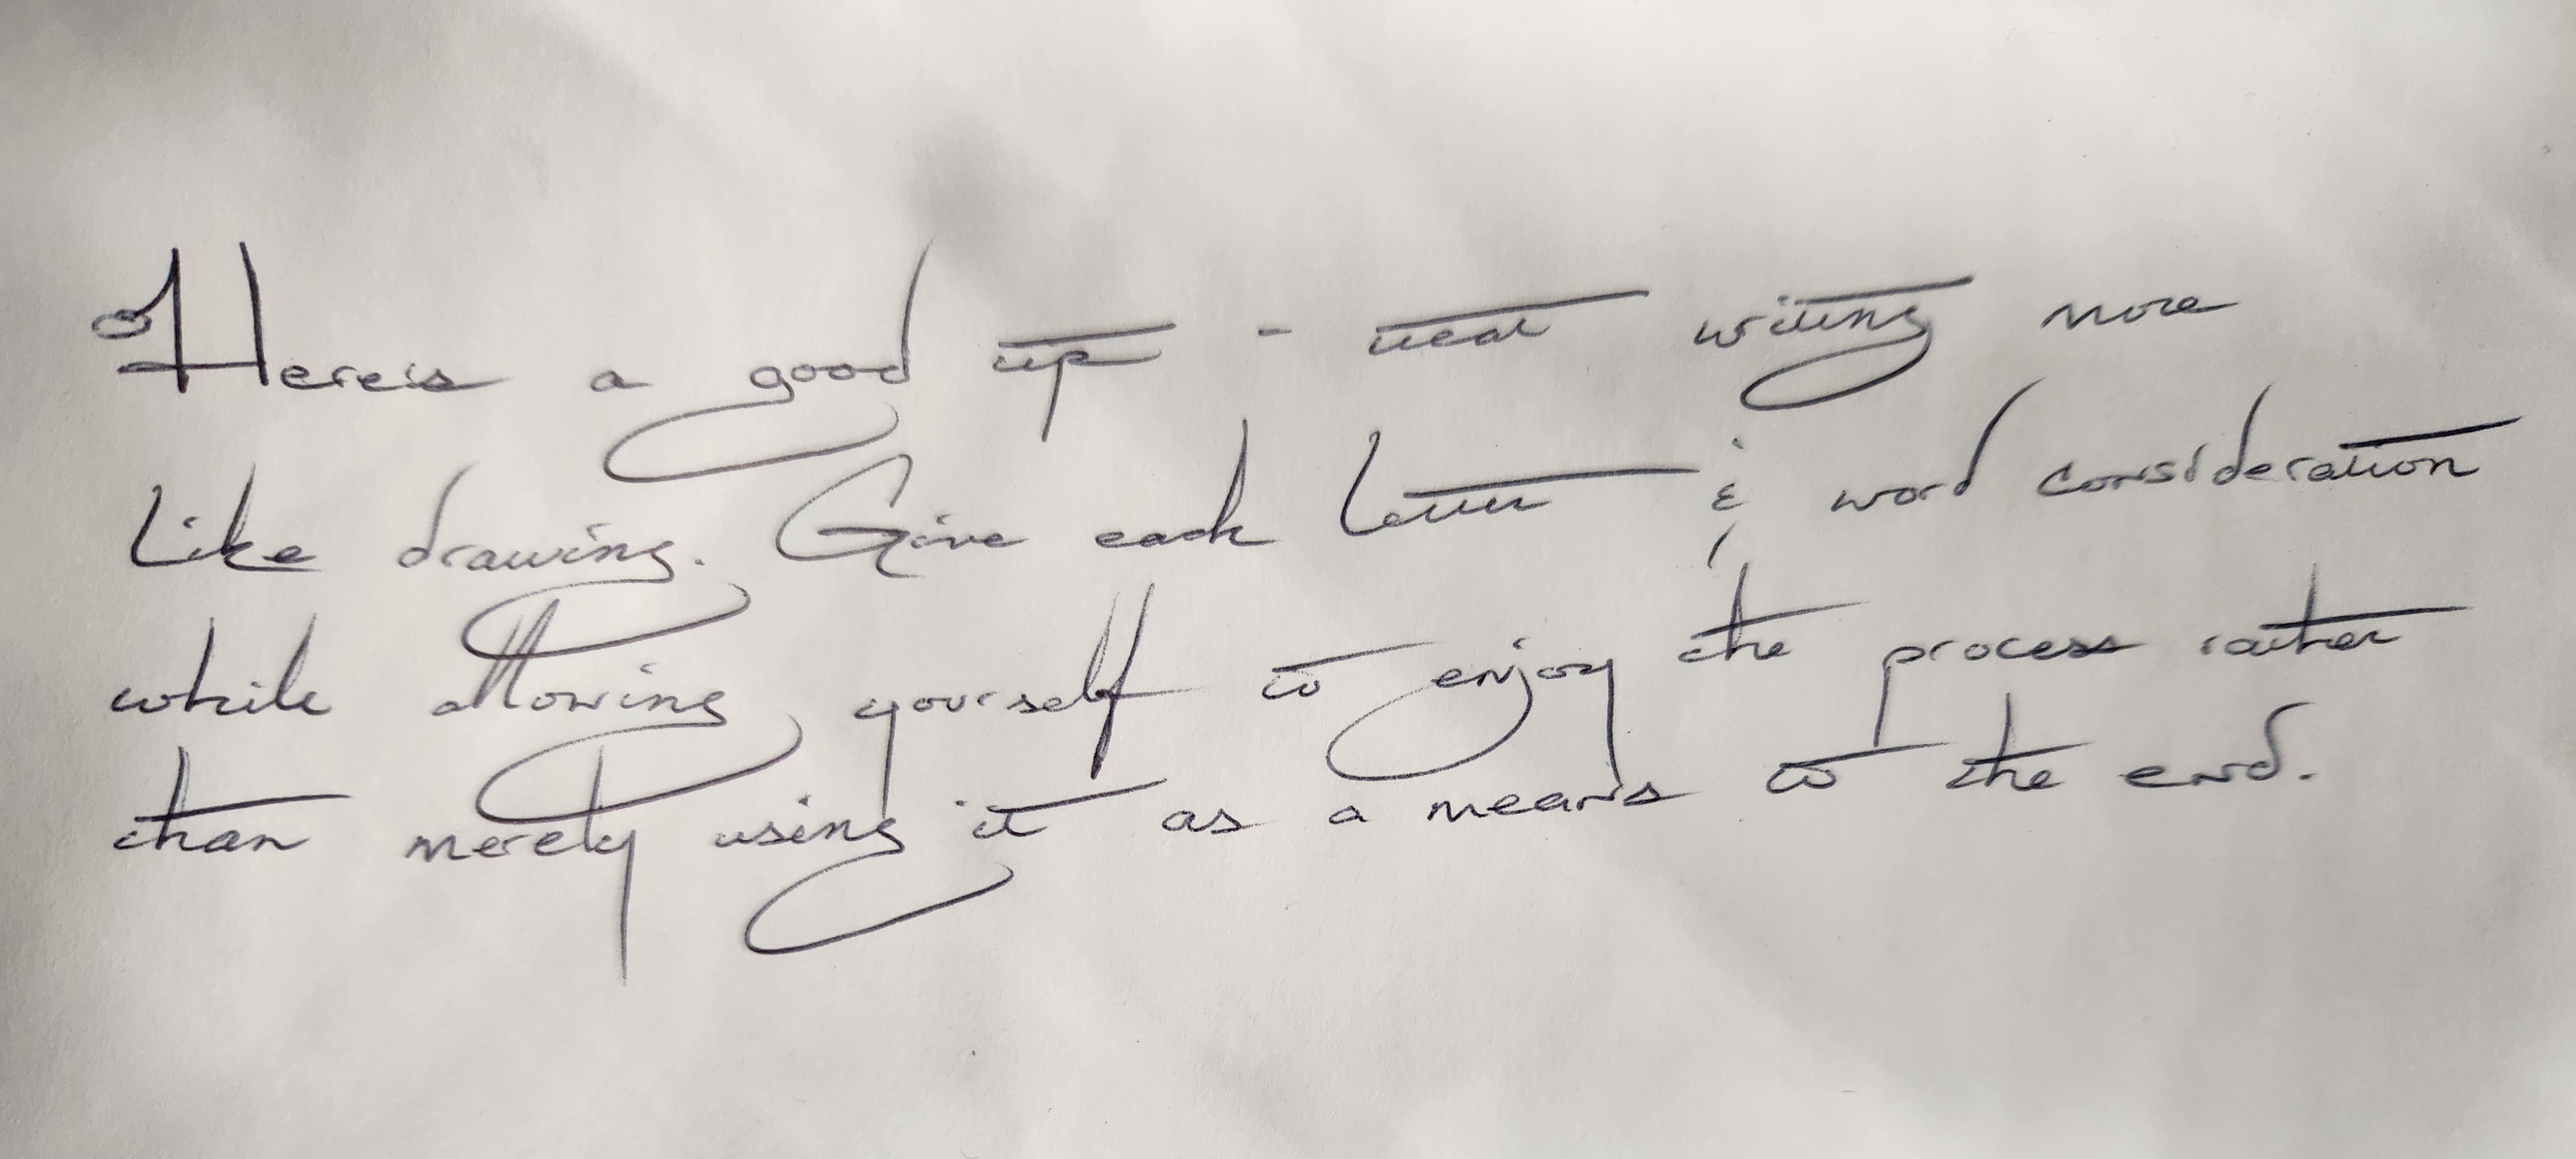 Here's a good tip - treat writing more
like drawing. Give each letter & word consideration
while allowing yourself to enjoy the process rather
than merely using it as a means to the end.